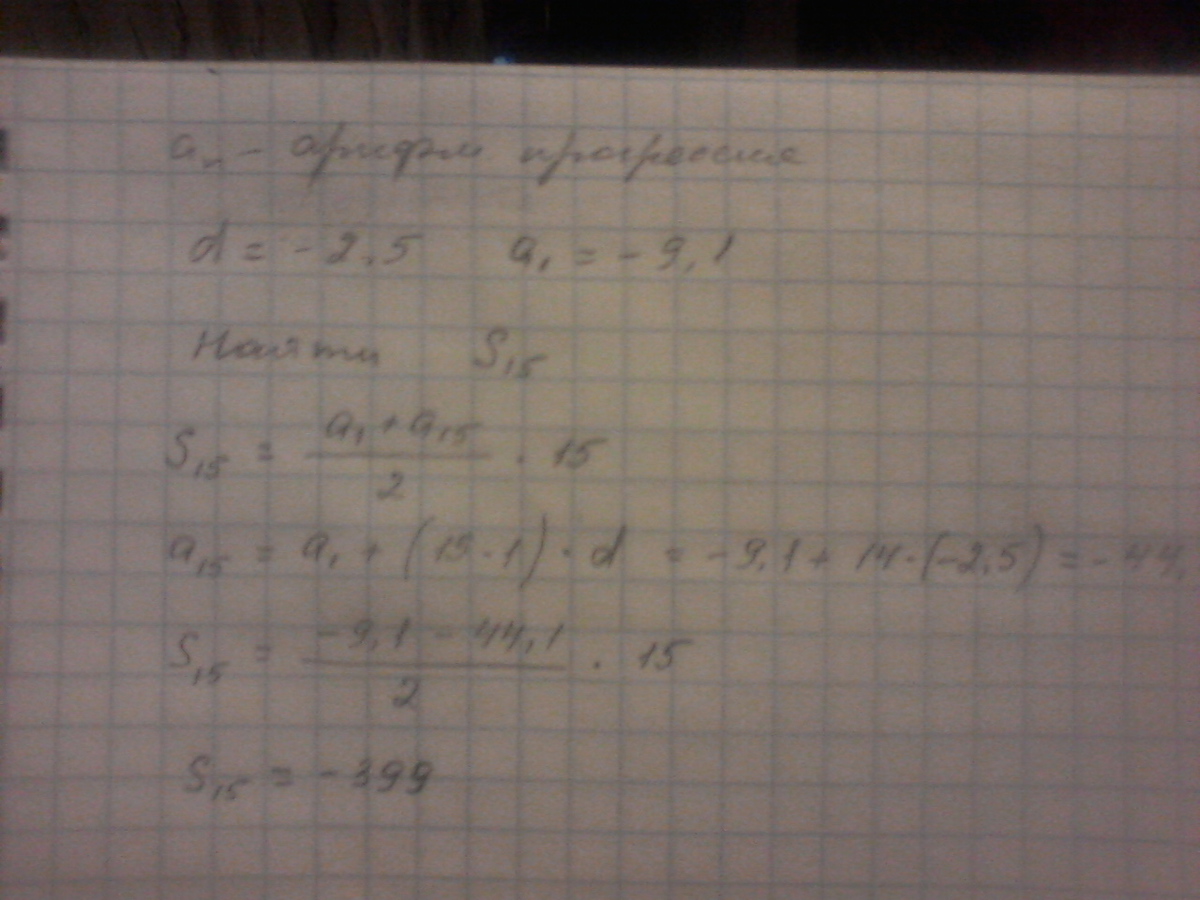 aₙ - арифм прогрессия
d = -2,5 a₁ = -9,1
Найти S₁₅
S₁₅ = (a₁ + a₁₅)/2 · 15
a₁₅ = a₁ + (15 - 1) · d = -9,1 + 14 · (-2,5) = -44,
S₁₅ = (-9,1 - 44,1)/2 · 15
S₁₅ = -399